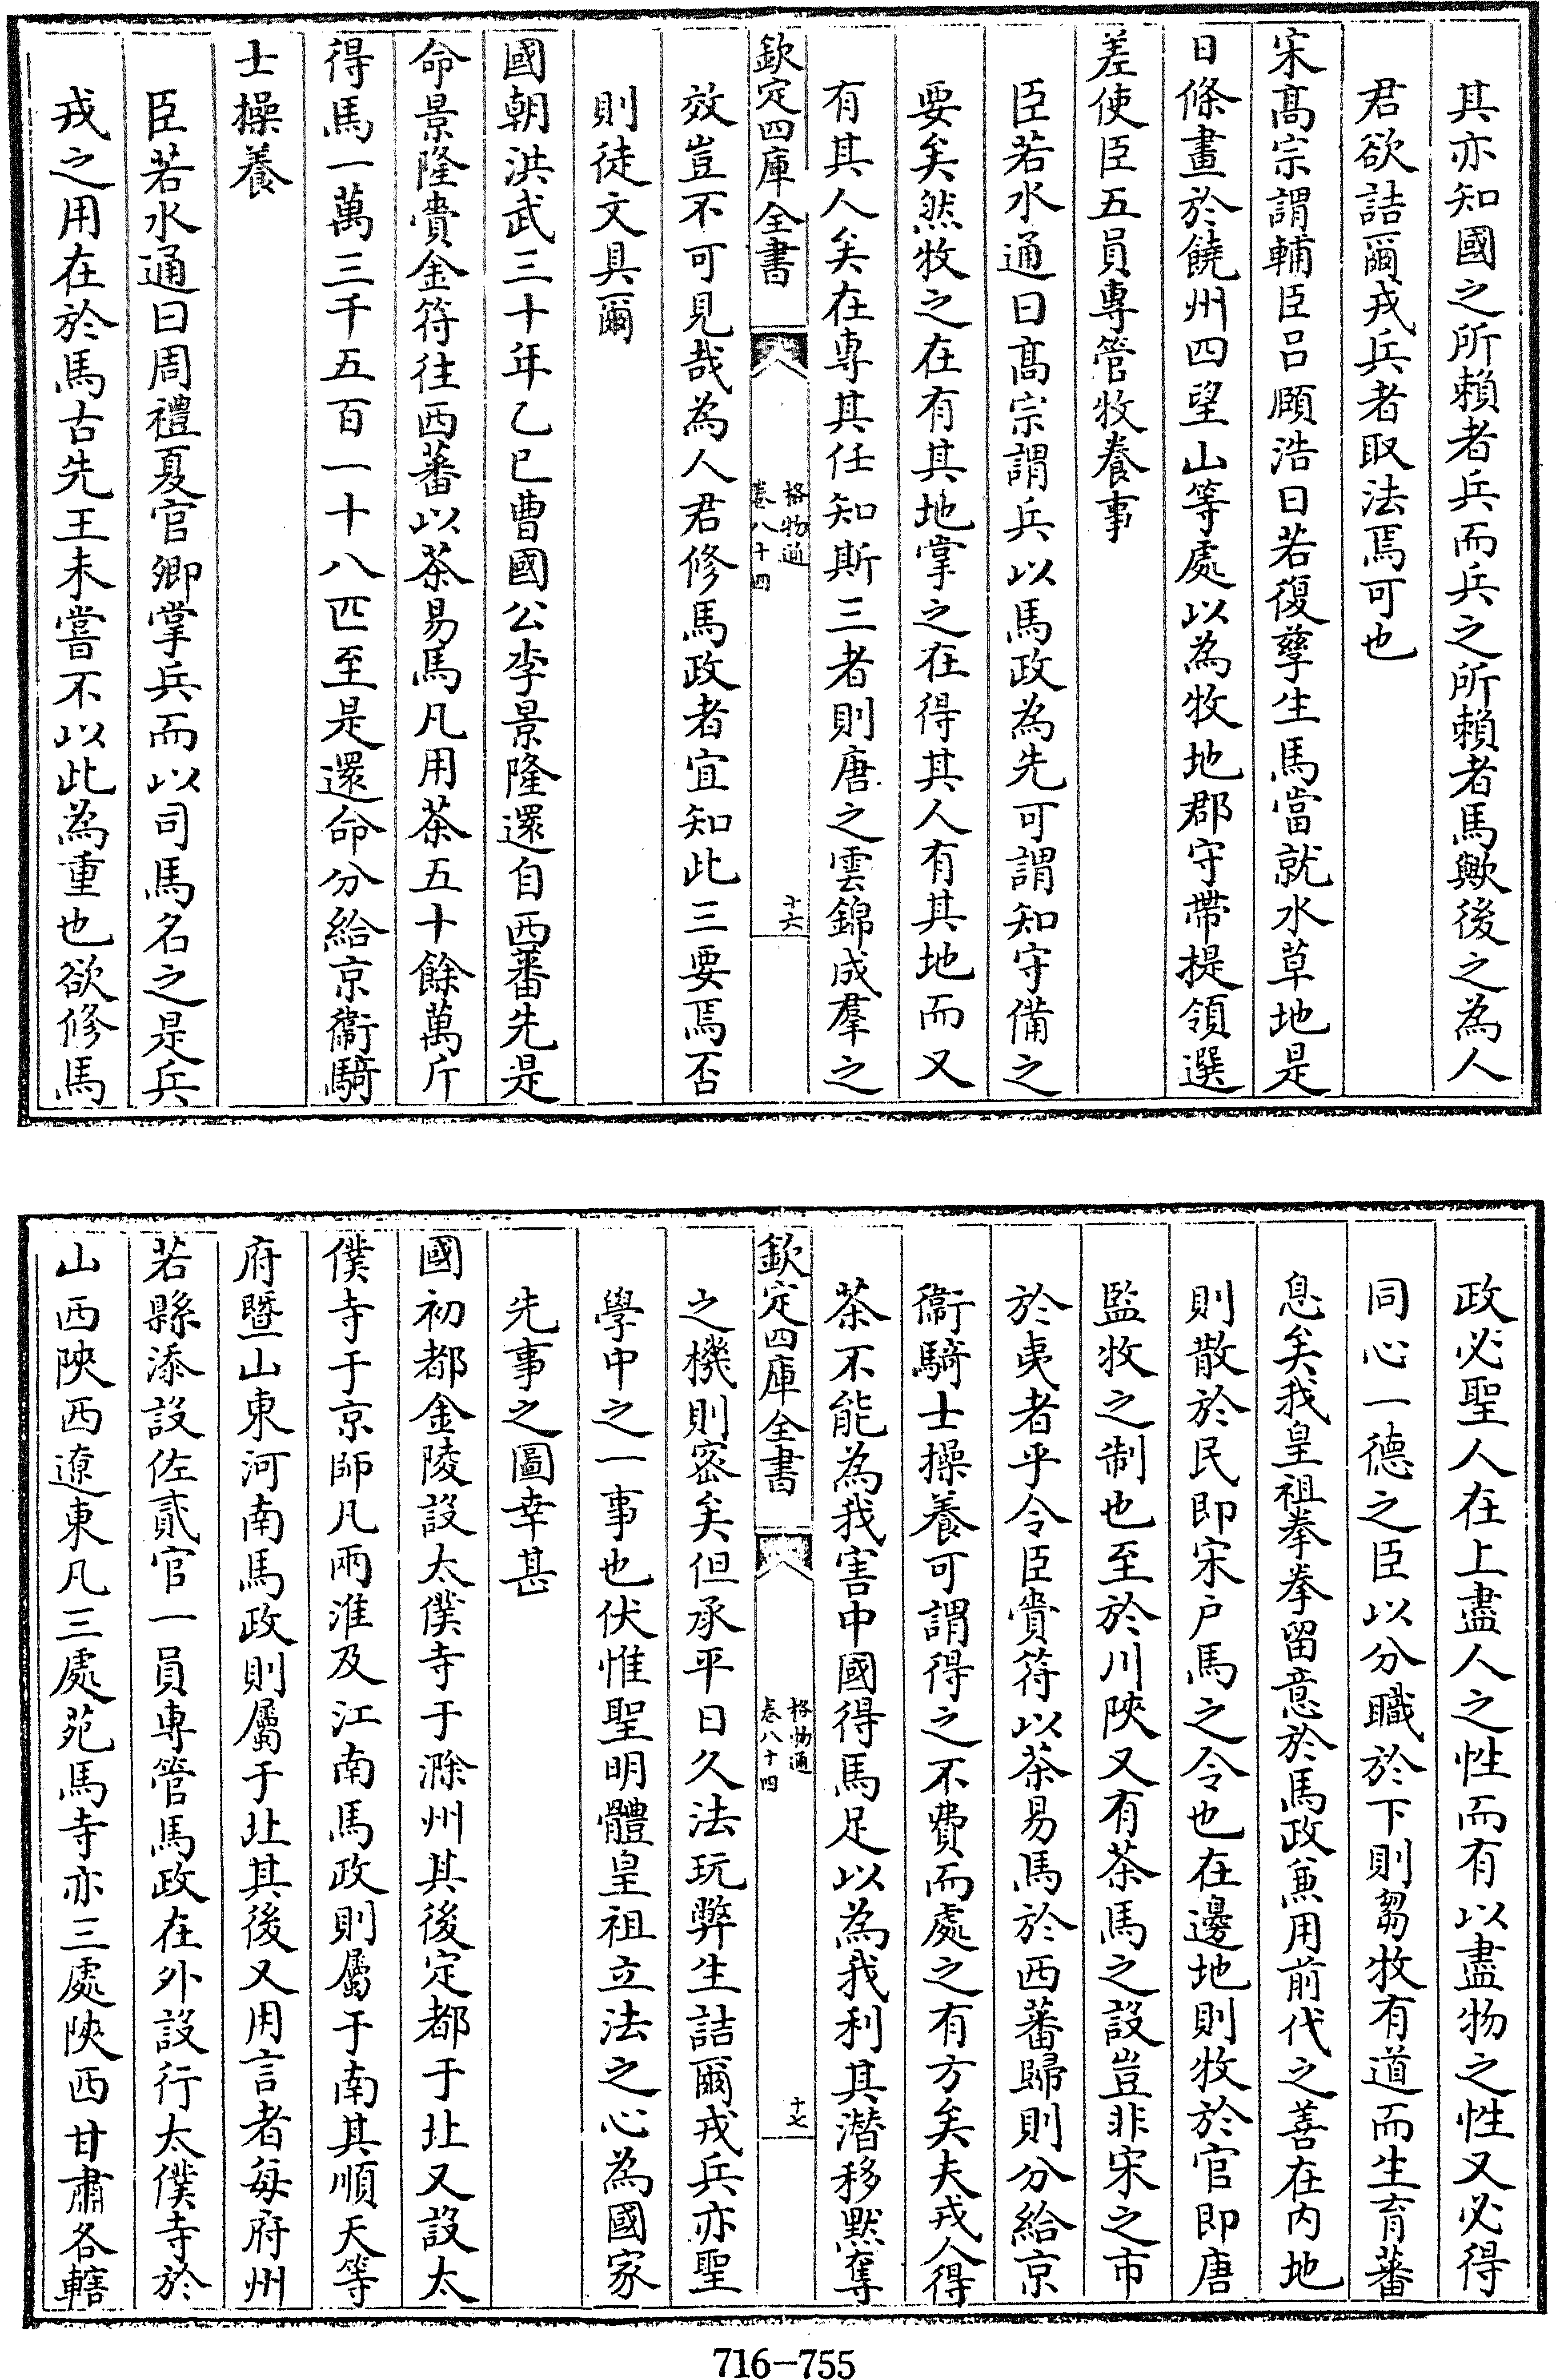 其亦知國之所賴者兵而兵之所賴者馬歟後之為人
君欲詰爾戎兵者取法焉可也
宋髙宗謂輔臣呂頤浩曰若復孳生馬當就水草地是
日條畫於饒州四望山等處以為牧地郡守帶提領選
差使臣五員專管牧養事
臣若水通曰髙宗謂兵以馬政為先可謂知守備之
要矣然牧之在有其地掌之在得其人有其地而又
有其人矣在專其任知斯三者則唐之雲錦成羣之
欽定四庫全書
格物通
卷八十四
十六
效豈不可見哉為人君修馬政者宜知此三要焉否
則徒文具爾
國朝洪武三十年乙巳曹國公李景隆還自西蕃先是
命景隆賫金符往西蕃以茶易馬凡用茶五十餘萬斤
得馬一萬三千五百一十八匹至是還命分給京衞騎
士操養
臣若水通曰周禮夏官卿掌兵而以司馬名之是兵
戎之用在於馬古先王未嘗不以此為重也欲修馬
政必聖人在上盡人之性而有以盡物之性又必得
同心一德之臣以分職於下則芻牧有道而生育蕃
息矣我皇祖拳拳留意於馬政兼用前代之善在内地
則散於民即宋户馬之令也在邊地則牧於官即唐
監牧之制也至於川陜又有茶馬之設豈非宋之市
於夷者乎令臣賫符以茶易馬於西蕃歸則分給京
衞騎士操養可謂得之不費而處之有方矣夫戎人得
茶不能為我害中國得馬足以為我利其潛移黙奪
欽定四庫全書
格物通
卷八十四
十七
之機則密矣但承平日久法玩弊生詰爾戎兵亦聖
學中之一事也伏惟聖明體皇祖立法之心為國家
先事之圖幸甚
國初都金陵設太僕寺于滁州其後定都于北又設太
僕寺于京師凡兩淮及江南馬政則屬于南其順天等
府暨山東河南馬政則屬于北其後又用言者每府州
若縣添設佐貳官一員専管馬政在外設行太僕寺於
山西陜西遼東凡三處苑馬寺亦三處陜西甘肅各轄
716-755